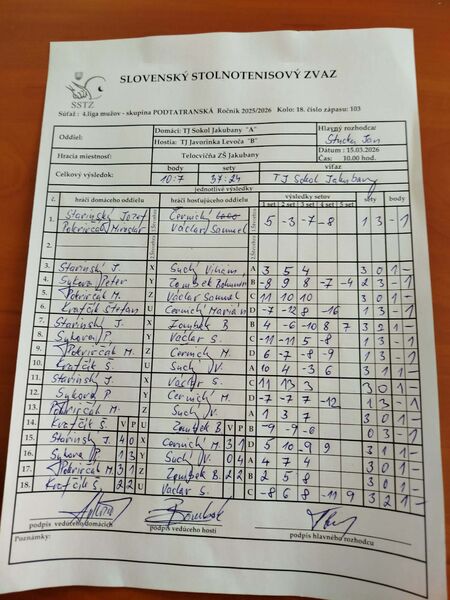 SLOVENSKÝ STOLNOTENISOVÝ ZVAZ
SSTZ
Súťaž : 4.liga mužov - skupina PODTATRANSKÁ Ročník 2025/2026 Kolo: 18. číslo zápasu: 103
Oddiel: Domáci: TJ Sokol Jakubany "A" Hlavný rozhodca:
Hostia: TJ Javorinka Levoča "B" Jan
Hracia miestnosť: Telocvičňa ZŠ Jakubany Dátum : 15.03.2026
Čas: 10.00 hod.
Celkový výsledok: body sety víťaz
10:7 37:24 TJ Sokol Jakubany
jednotlivé výsledky
č. hráči domáceho oddielu hráči hosťujúceho oddielu výsledky setov sety body
1 set 2 set 3 set 4 set 5 set
1. Starinský Jozef Černický 5 -3 -7 -8 1 3 - 1
Pokrivčák Miroslav Václav Samuel
2.
3. Starinský J. X Suchý A 3 5 4 3 0 1 -
4. Sykora Peter Y Zombek B -8 9 8 -7 -4 2 3 - 1
5. Pokrivčák M. Z Václav Samuel C 11 10 10 3 0 1 -
6. Krafčík Štefan U Černický Marian D -7 -12 8 -16 1 3 - 1
7. Starinský J. X Zombek B. B 4 -6 -10 8 7 3 2 1 -
8. Sykora P. Y Václav S. C -11 -11 5 -8 1 3 - 1
9. Pokrivčák M. Z Černický M. D 6 -7 -8 -9 1 3 - 1
10. Krafčík Š. U Suchý V. A 10 4 -3 6 3 1 1 -
11. Starinský J. X Václav S. C 11 13 3 3 0 1 -
12. Sykora P. Y Černický M. D -7 -7 7 -12 1 3 - 1
13. Pokrivčák M. Z Suchý V. A 1 3 7 3 0 1 -
14. Krafčík Š. V P U Zombek B. V P B -9 -9 -6 0 3 - 1
15. Starinský J. 4 0 X Černický M. 3 1 D 5 10 -9 9 3 1 1 -
16. Sykora P. 1 3 Y Suchý V. 0 4 A 4 7 4 3 0 1 -
17. Pokrivčák M. 3 1 Z Zombek B. 2 2 B 2 5 8 3 0 1 -
18. Krafčík Š. 2 2 U Václav S. C -8 6 8 -11 9 3 2 1 -
podpis vedúceho domácich podpis vedúceho hostí podpis hlavného rozhodcu
Poznámky: